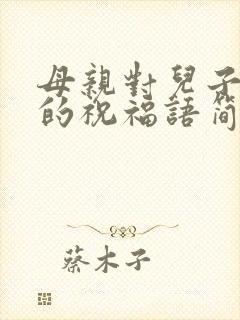 母親對兒子
的祝福語简
蔡木子